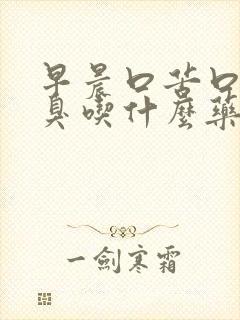 早晨口苦口
臭喫什麼藥
一劍寒霜